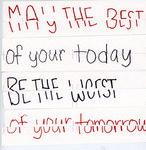 MAY THE BEST
of your today
BE THE WORST
of your tomorrow